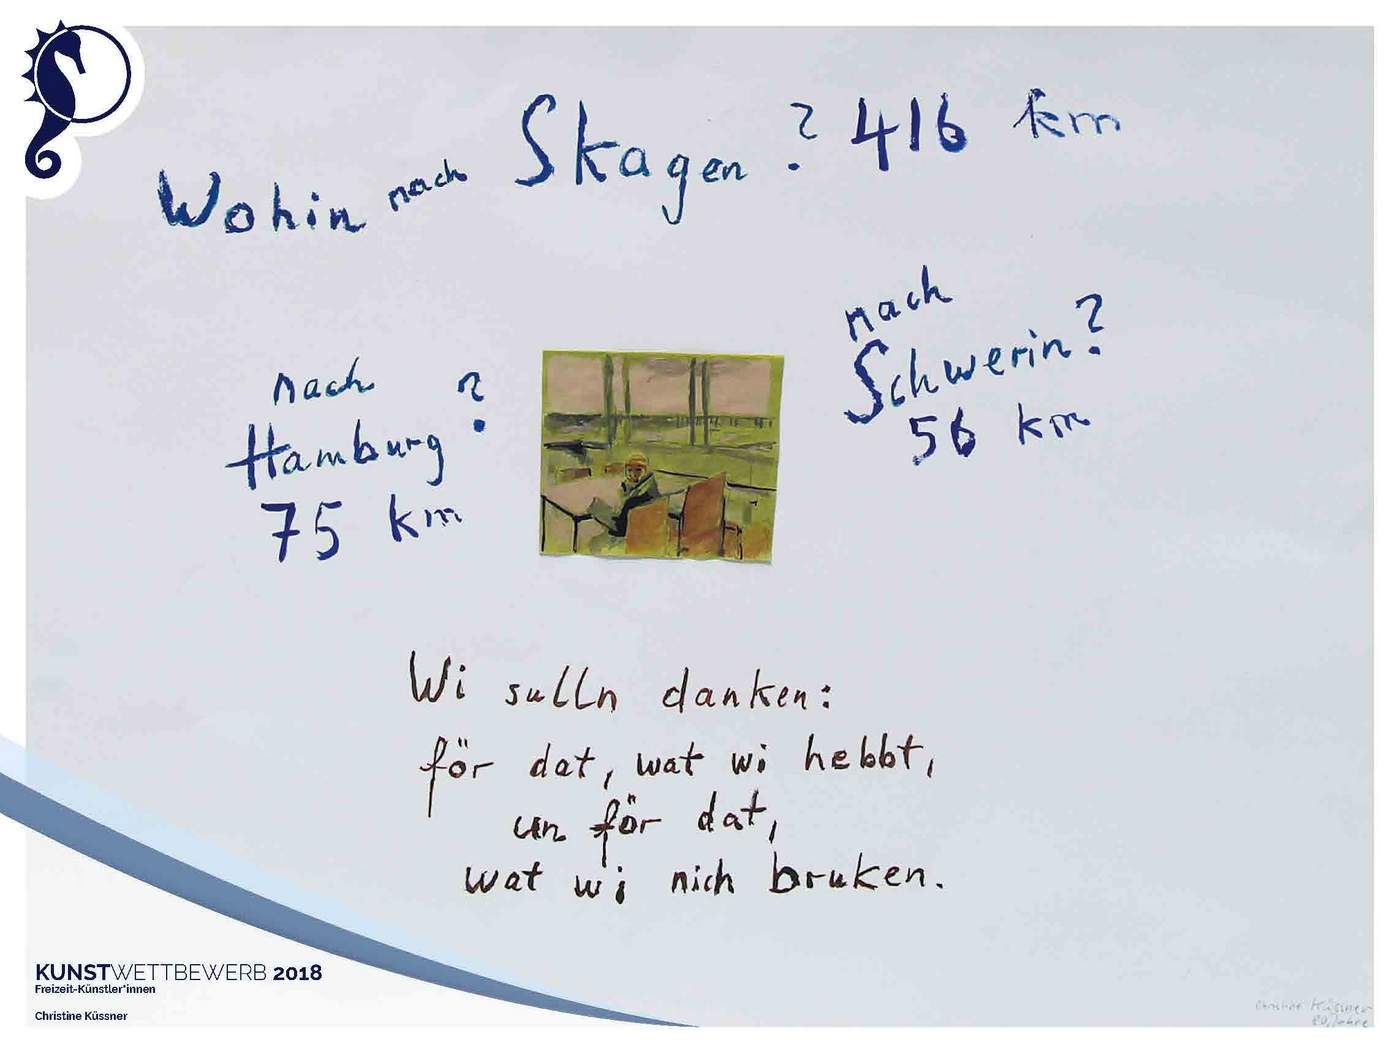 Wohin nach Skagen? 416 km
nach
Schwerin?
56 km
nach
Hamburg?
75 km
Wi sulln danken:
för dat, wat wi hebbt,
un för dat,
wat wi nich bruken.
KUNSTWETTBEWERB 2018
Freizeit-Künstler*innen
Christine Küssner
Christine Küssner
80 Jahre